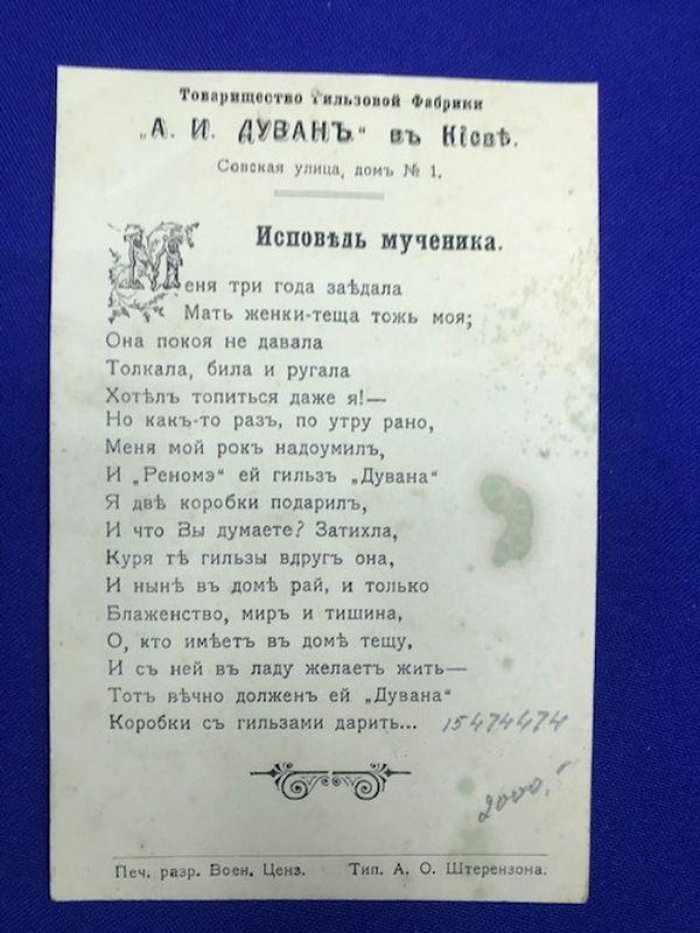 Товарищество Гильзовой Фабрики
„А. И. ДУВАНЪ“ въ Кіевѣ.
Совская улица, домъ № 1.
Исповѣдь мученика.
Меня три года заѣдала
Мать женки-теща тожь моя;
Она покоя не давала
Толкала, била и ругала
Хотѣлъ топиться даже я!—
Но какъ-то разъ, по утру рано,
Меня мой рокъ надоумилъ,
И „Реномэ“ ей гильзъ „Дувана“
Я двѣ коробки подарилъ,
И что Вы думаете? Затихла,
Куря тѣ гильзы вдругъ она,
И нынѣ въ домѣ рай, и только
Блаженство, миръ и тишина,
О, кто имѣетъ въ домѣ тещу,
И съ ней въ ладу желаетъ жить—
Тотъ вѣчно долженъ ей „Дувана“
Коробки съ гильзами дарить... 15474474
2000,-
Печ. разр. Воен. Ценз. Тип. А. О. Штерензона.